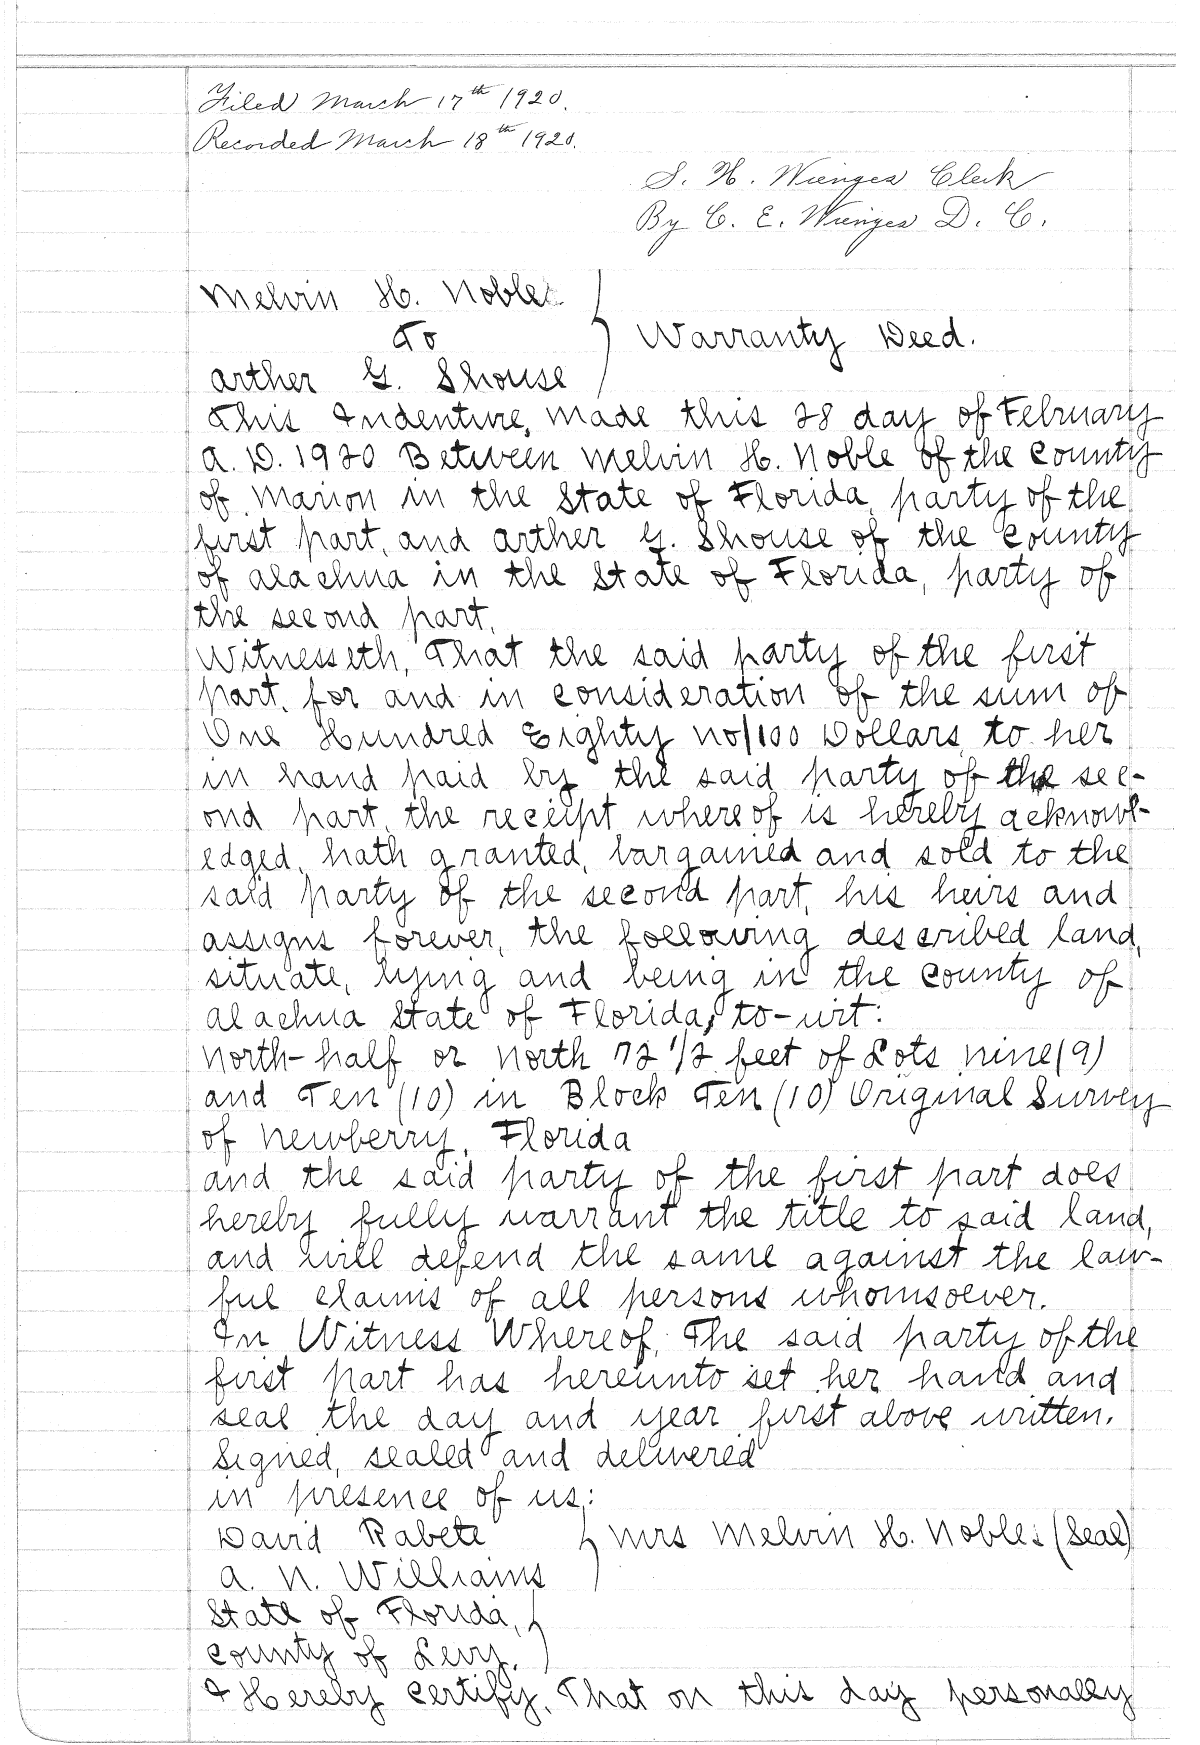 Filed March 17th 1920.
Recorded March 18th 1920.
S. H. Wienges Clerk
By C. E. Wienges D. C.
Melvin H. Noble
To
Warranty Deed.
Arther G. Shouse
This Indenture, Made this 28 day of February
A. D. 1920 Between Melvin H. Noble of the County
of Marion in the State of Florida, party of the
first part, and Arther G. Shouse of the County
of Alachua in the State of Florida, party of
the second part,
Witnesseth, That the said party of the first
part, for and in consideration of the sum of
One Hundred Eighty no/100 Dollars, to her
in hand paid by the said party of the sec-
ond part, the receipt whereof is hereby acknowl-
edged, hath granted, bargained and sold to the
said party of the second part, his heirs and
assigns forever, the following described land,
situate, lying and being in the County of
Alachua State of Florida, to-wit:
North-half or North 72 1/2 feet of Lots nine (9)
and Ten (10) in Block Ten (10) Original Survey
of Newberry, Florida
and the said party of the first part does
hereby fully warrant the title to said land,
and will defend the same against the law-
ful claims of all persons whomsoever.
In Witness Whereof, The said party of the
first part has hereunto set her hand and
seal the day and year first above written.
Signed, sealed and delivered
in presence of us:
David Rabete Mrs Melvin H. Nobles (Seal)
A. N. Williams
State of Florida,
County of Levy.
I Hereby Certify, That on this day personally